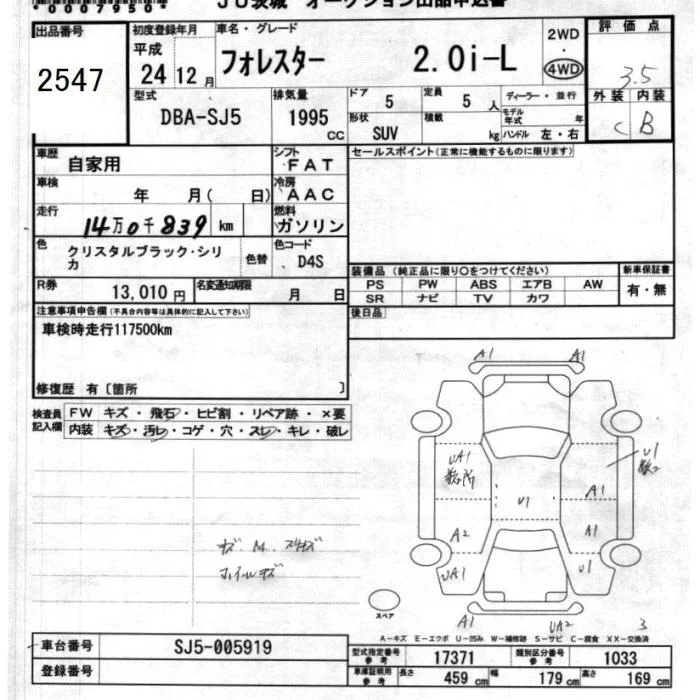 00079500
JU茨城 オークション出品申込書
出品番号
2547
初度登録年月
平成
24 12 月
車名・グレード
フォレスター 2.0i-L
2WD
・
4WD
評価点
3.5
外装 内装
C B
型式
DBA-SJ5
排気量
1995 cc
ドア
5
定員
5 人
ディーラー・並行
形状
SUV
積載
kg
モデル年式 年
ハンドル 左・右
車歴
自家用
シフト
FAT
セールスポイント(正常に機能するものに限ります)
車検
年 月( 日)
冷房
AAC
走行
14万0千839 km
燃料
ガソリン
色
クリスタルブラック・シリカ
色替
色コード
D4S
装備品 (純正品に限り○をつけてください)
新車保証書
PS PW ABS エアB AW
SR ナビ TV カワ
有・無
R券
13,010 円
名変通知期限
月 日
後日品
注意事項申告欄(不具合内容等は具体的に記入して下さい)
車検時走行117500km
修復歴 有〔箇所 〕
検査員記入欄
FW キズ・飛石・ヒビ割・リペア跡・×要
内装 キズ・汚レ・コゲ・穴・スレ・キレ・破レ
A1 A1
UA1
U1
U1
A1
A2
A1
UA1
U1
A1
UA2
3
スペア
A-キズ E-エクボ U-凹み W-補修跡 S-サビ C-腐食 XX-交換済
車台番号
SJ5-005919
登録番号
型式指定番号
参考
17371
類別区分番号
参考
1033
車庫証明用
参考
長さ
459 cm
幅
179 cm
高さ
169 cm